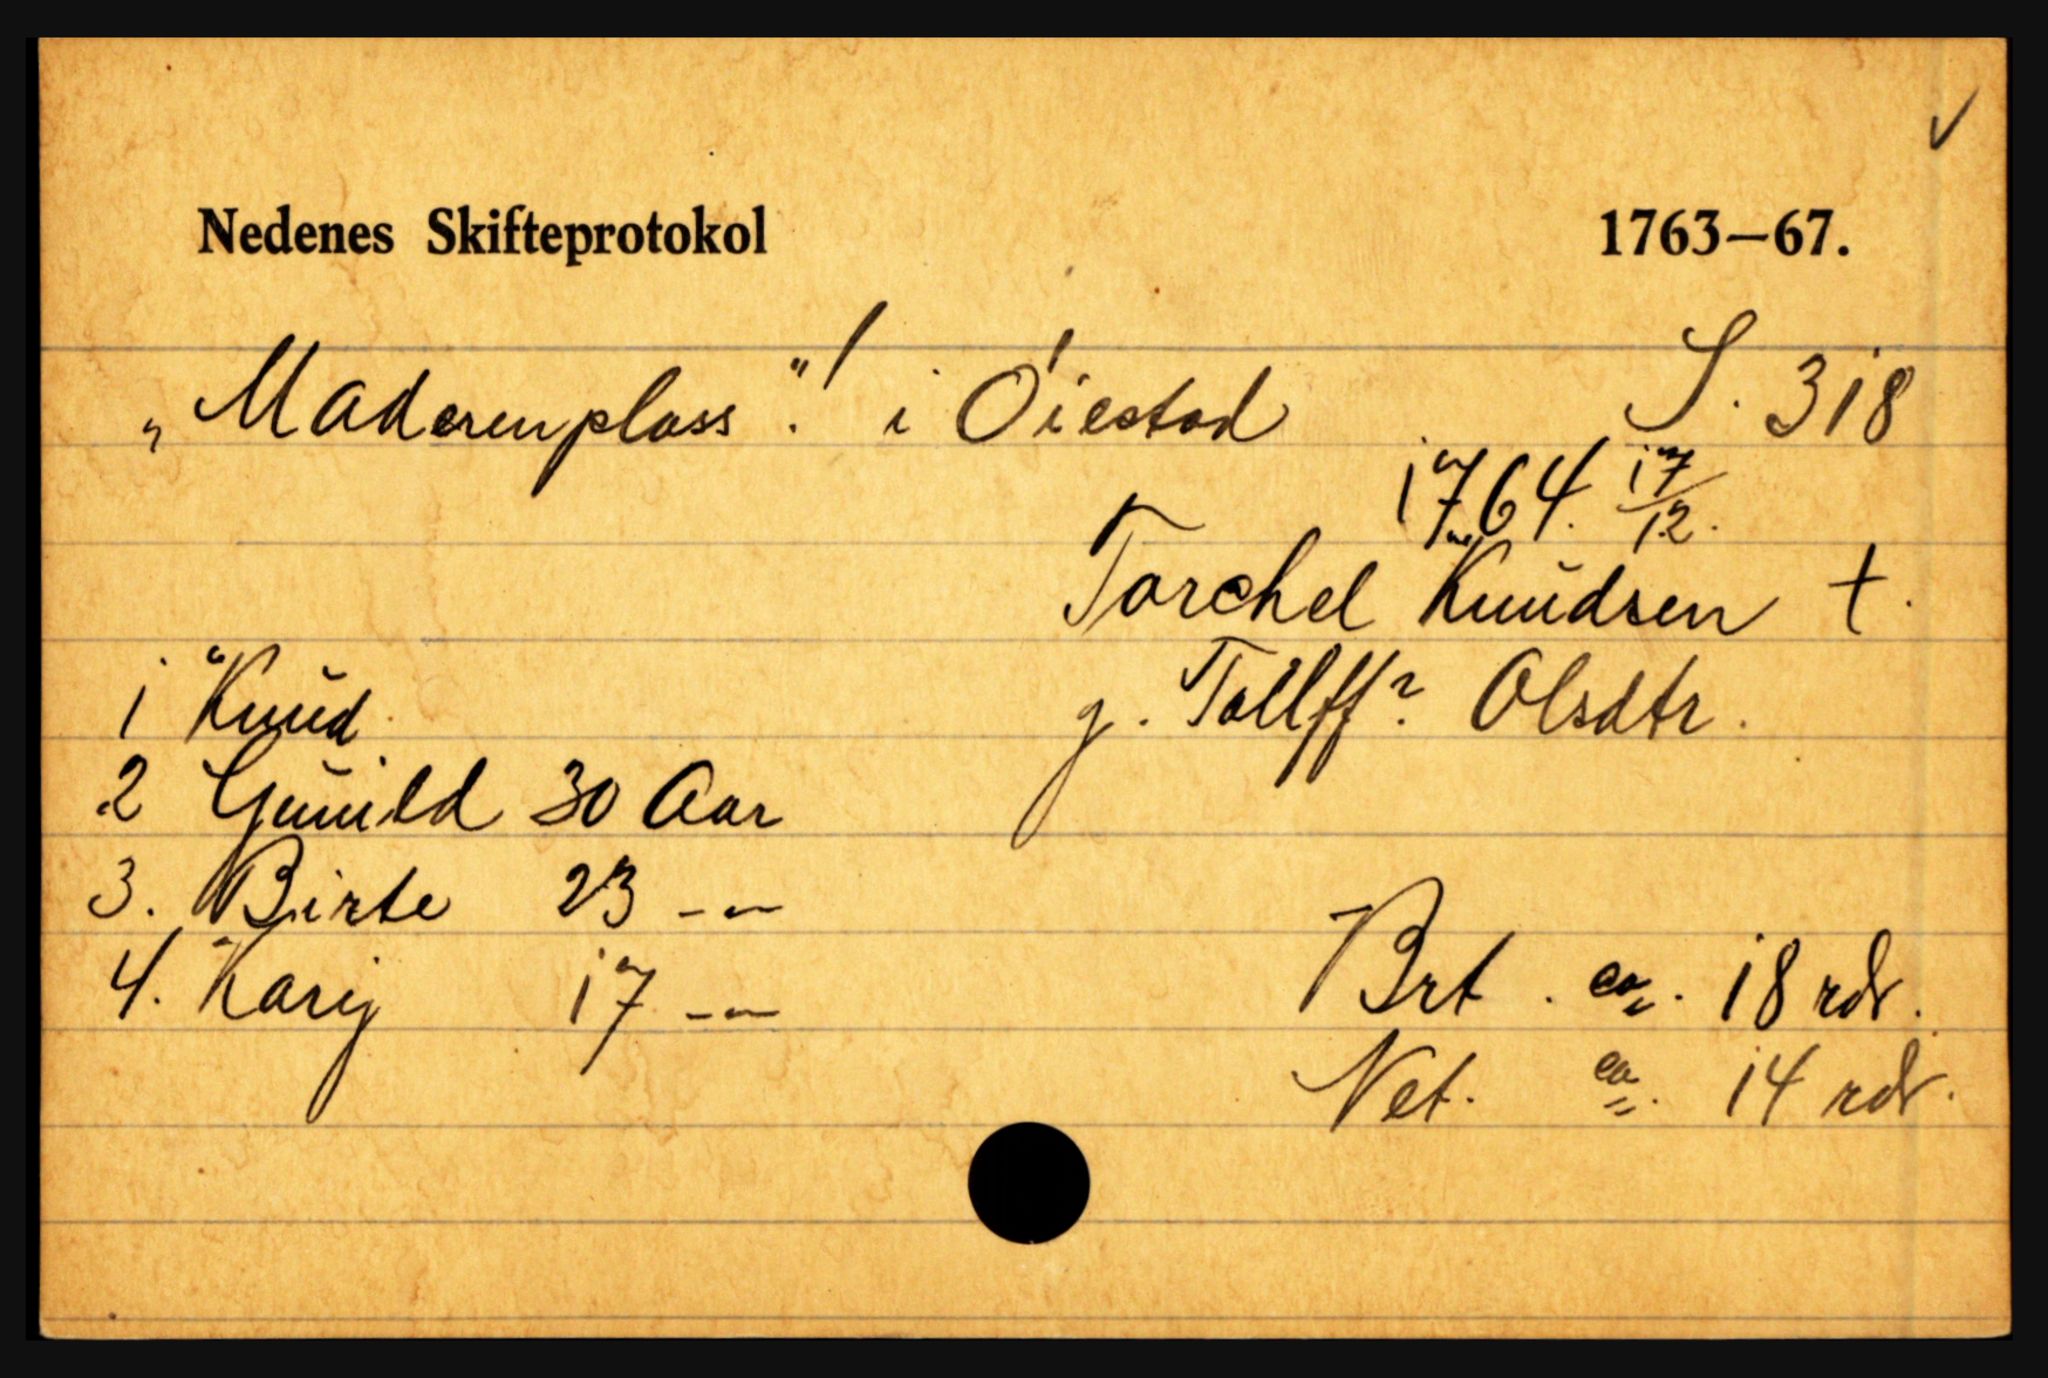 ✓
Nedenes Skifteprotokol 1763—67.
„Maderenplass“.! i Öiestad S. 318
1764. 17/12.
Torchel Knudsen †.
g. Tollff? Olsdtr.
1 Knud.
2 Gunild 30 Aar
3. Birte 23 -"-
4. Karij 17 -"-
Brt. ca. 18 rdr.
Net. ca. 14 rdr.